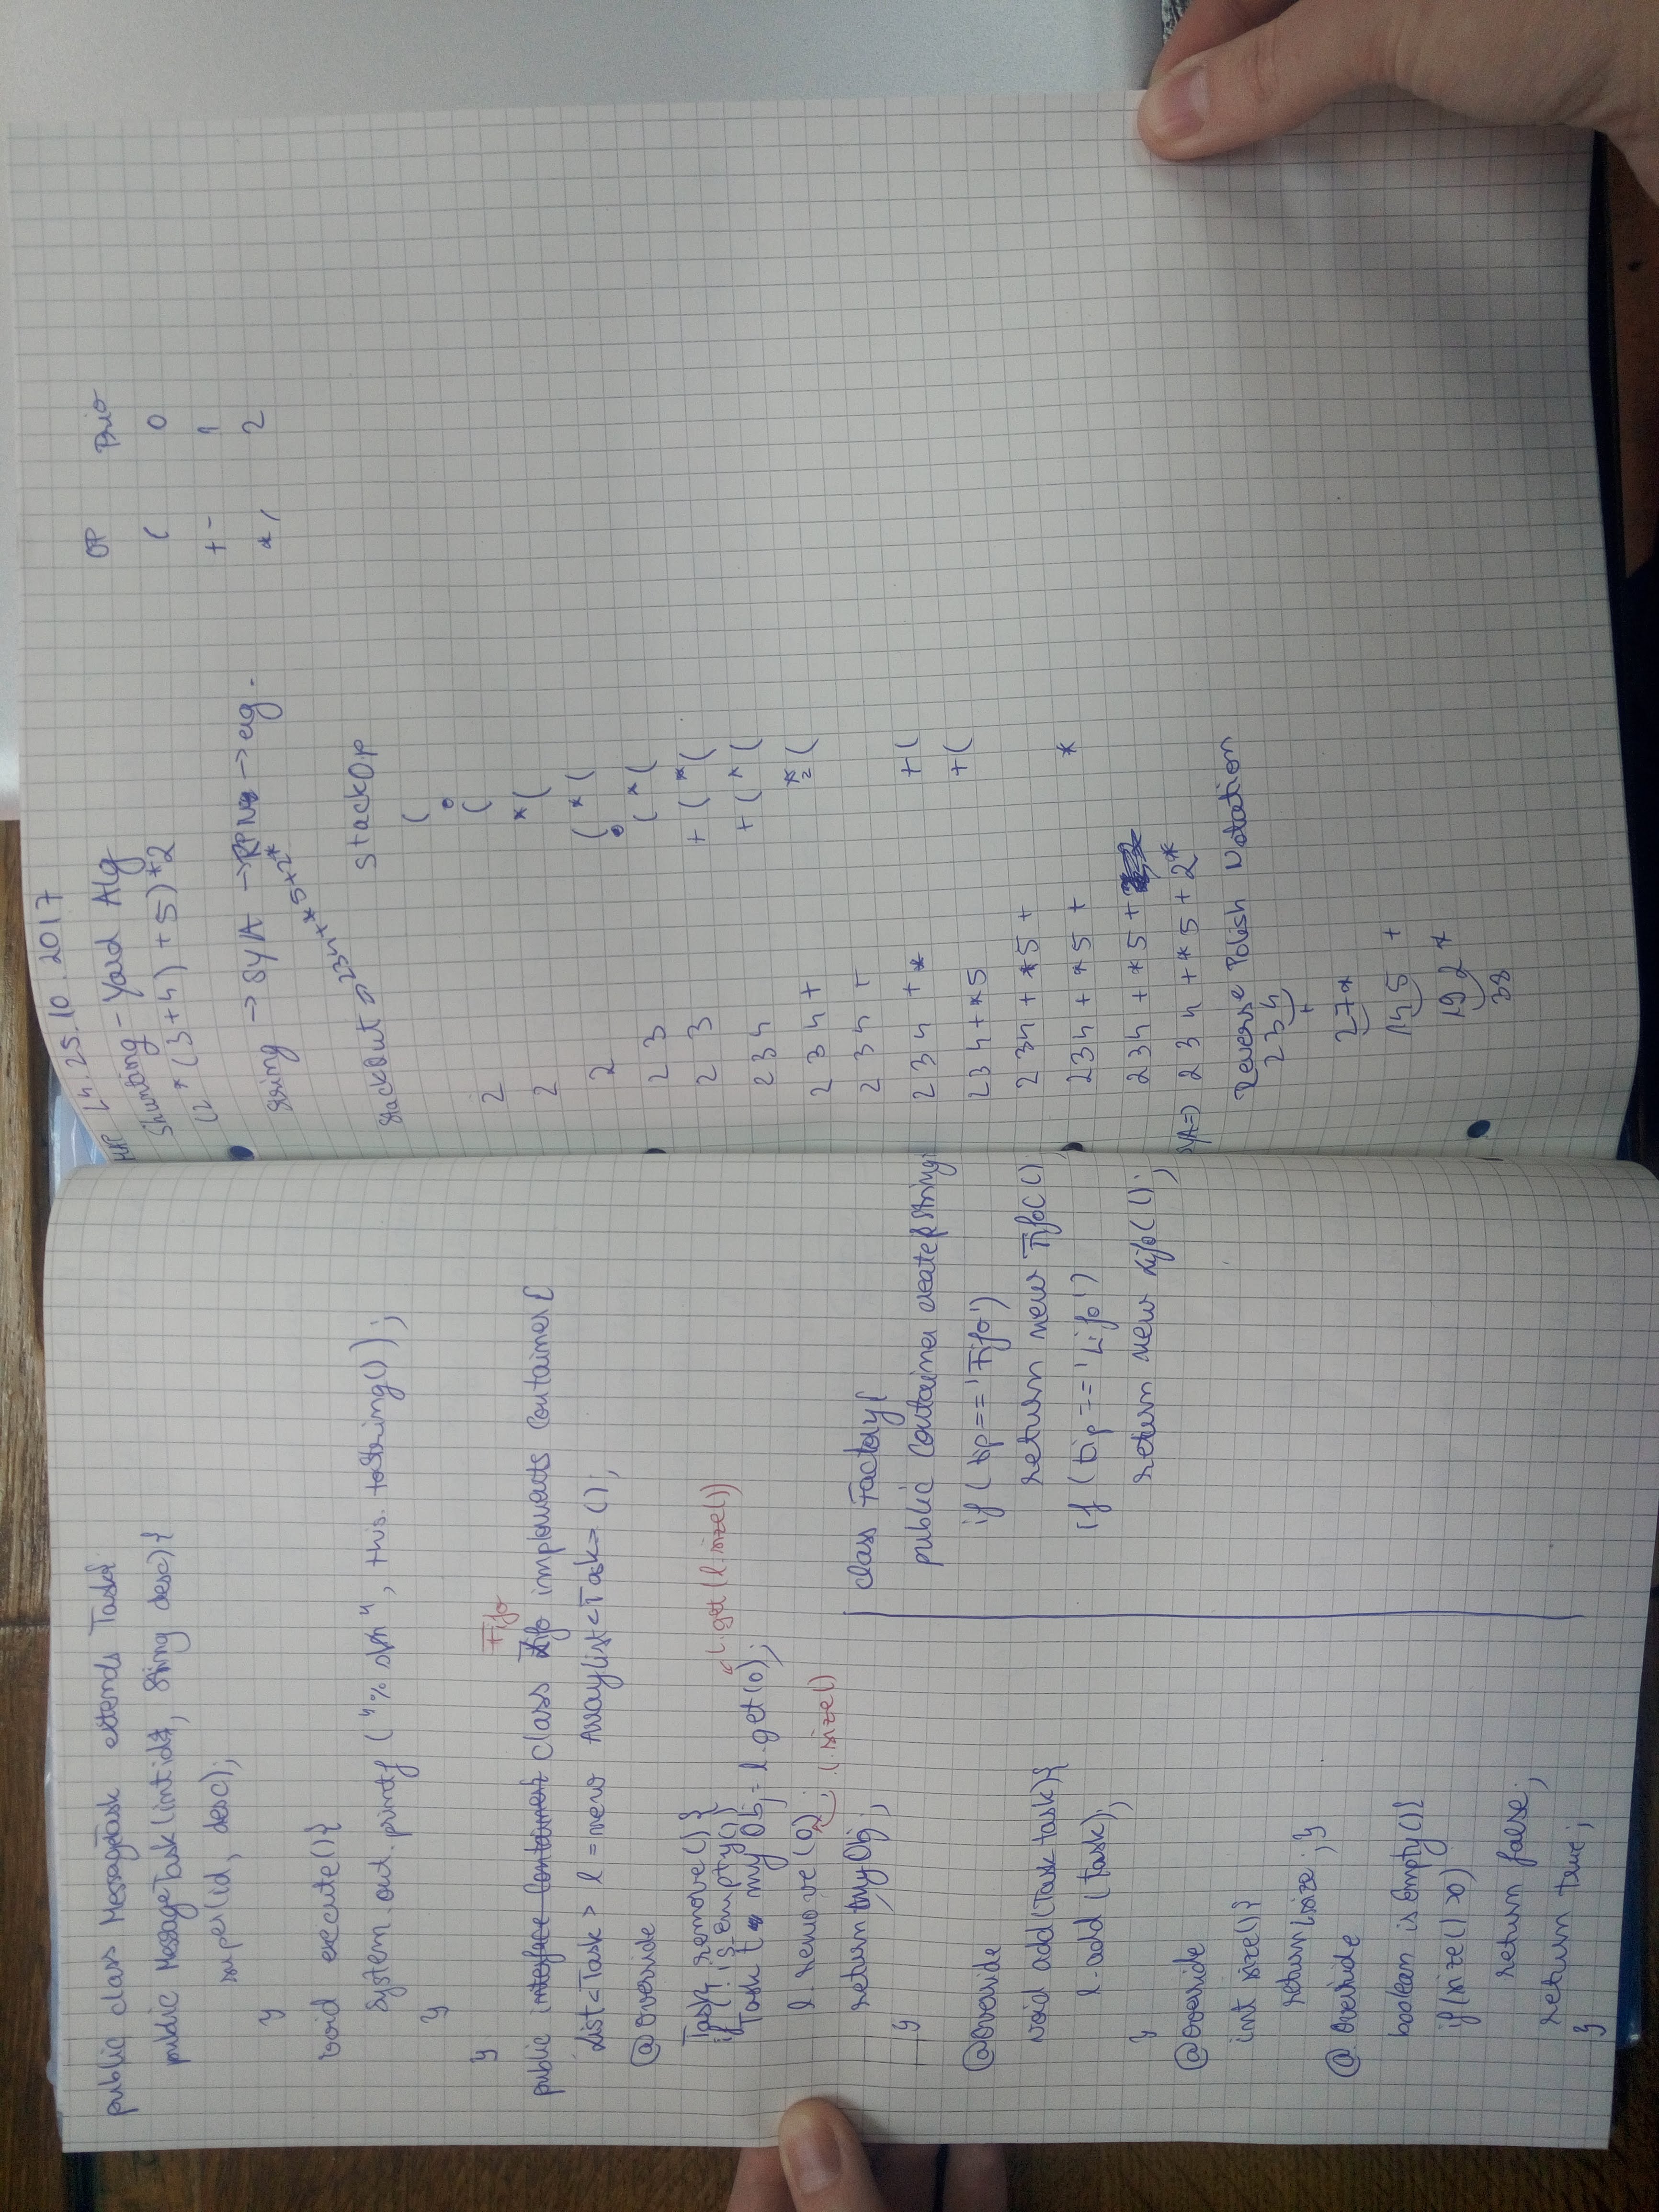 public class MessageTask extends Task{
public MessageTask(int id, String desc){
super(id, desc);
}
void execute(){
System.out.printf("%s\n", this.toString());
}
}
Fifo
public interface Container{ class Fifo implements Container{
List<Task> l = new ArrayList<Task>();
@Override
Task remove(){
if (!isEmpty())
l.get(l.size())
Task my Obj = l.get(0);
l.remove(0);
l.size()
return myObj;
}
@Override
void add(Task task){
l.add(task);
}
@Override
int size(){
return l.size; }
@Override
boolean isEmpty(){
if(size()>0)
return false;
return true;
}
class Factory{
public Container create(String
if (tip=='Fifo')
return new Fifo();
if (tip=='Lifo')
return new Lifo();
MAP L4. 25.10.2017
Shunting-Yard Alg
(2*(3+4)+5)*2
String → SYA → RPN → alg.
OP Prio
( 0
+ - 1
* / 2
StackOut => 234+*5+2* StackOp
(
2 (
2 *(
2 (*(
2 3 (*(
2 3 +(*(
2 3 4 +(*(
2 3 4 + *(
2 3 4 +
2 3 4 + * +(
2 3 4 + * 5 +(
2 3 4 + * 5 +
2 3 4 + * 5 + *
2 3 4 + * 5 +
SYA=> 2 3 4 + * 5 + 2*
Reverse Polish Notation
2 3 4
+
2 7 *
14 5 +
19 2 *
38